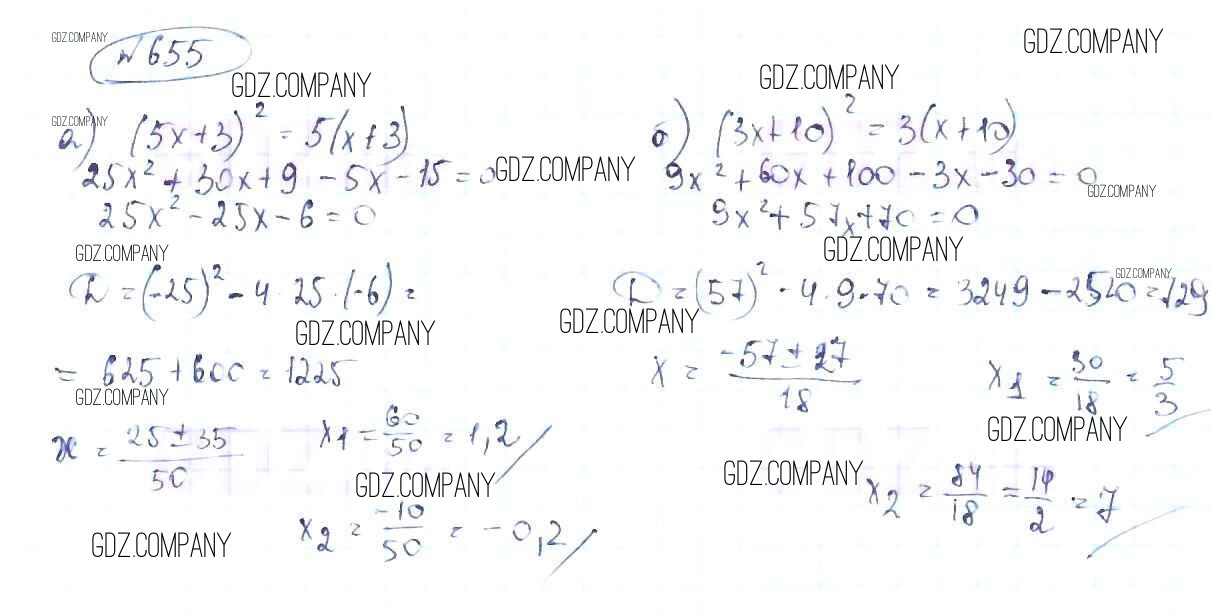 GDZ.COMPANY
№ 655
GDZ.COMPANY
GDZ.COMPANY
GDZ.COMPANY
GDZ.COMPANY
а) (5x+3)² = 5(x+3)
25x² + 30x + 9 - 5x - 15 = 0
GDZ.COMPANY
25x² - 25x - 6 = 0
GDZ.COMPANY
D = (-25)² - 4 · 25 · (-6) =
GDZ.COMPANY
= 625 + 600 = 1225
GDZ.COMPANY
x = (25 ± 35)/50
x1 = 60/50 = 1,2
GDZ.COMPANY
x2 = -10/50 = -0,2
GDZ.COMPANY
б) (3x+10)² = 3(x+10)
9x² + 60x + 100 - 3x - 30 = 0
GDZ.COMPANY
9x² + 57x + 70 = 0
GDZ.COMPANY
D = (57)² - 4 · 9 · 70 = 3249 - 2520 = 729
GDZ.COMPANY
GDZ.COMPANY
x = (-57 ± 27)/18
x1 = 30/18 = 5/3
GDZ.COMPANY
GDZ.COMPANY
x2 = 84/18 = 14/2 = 7